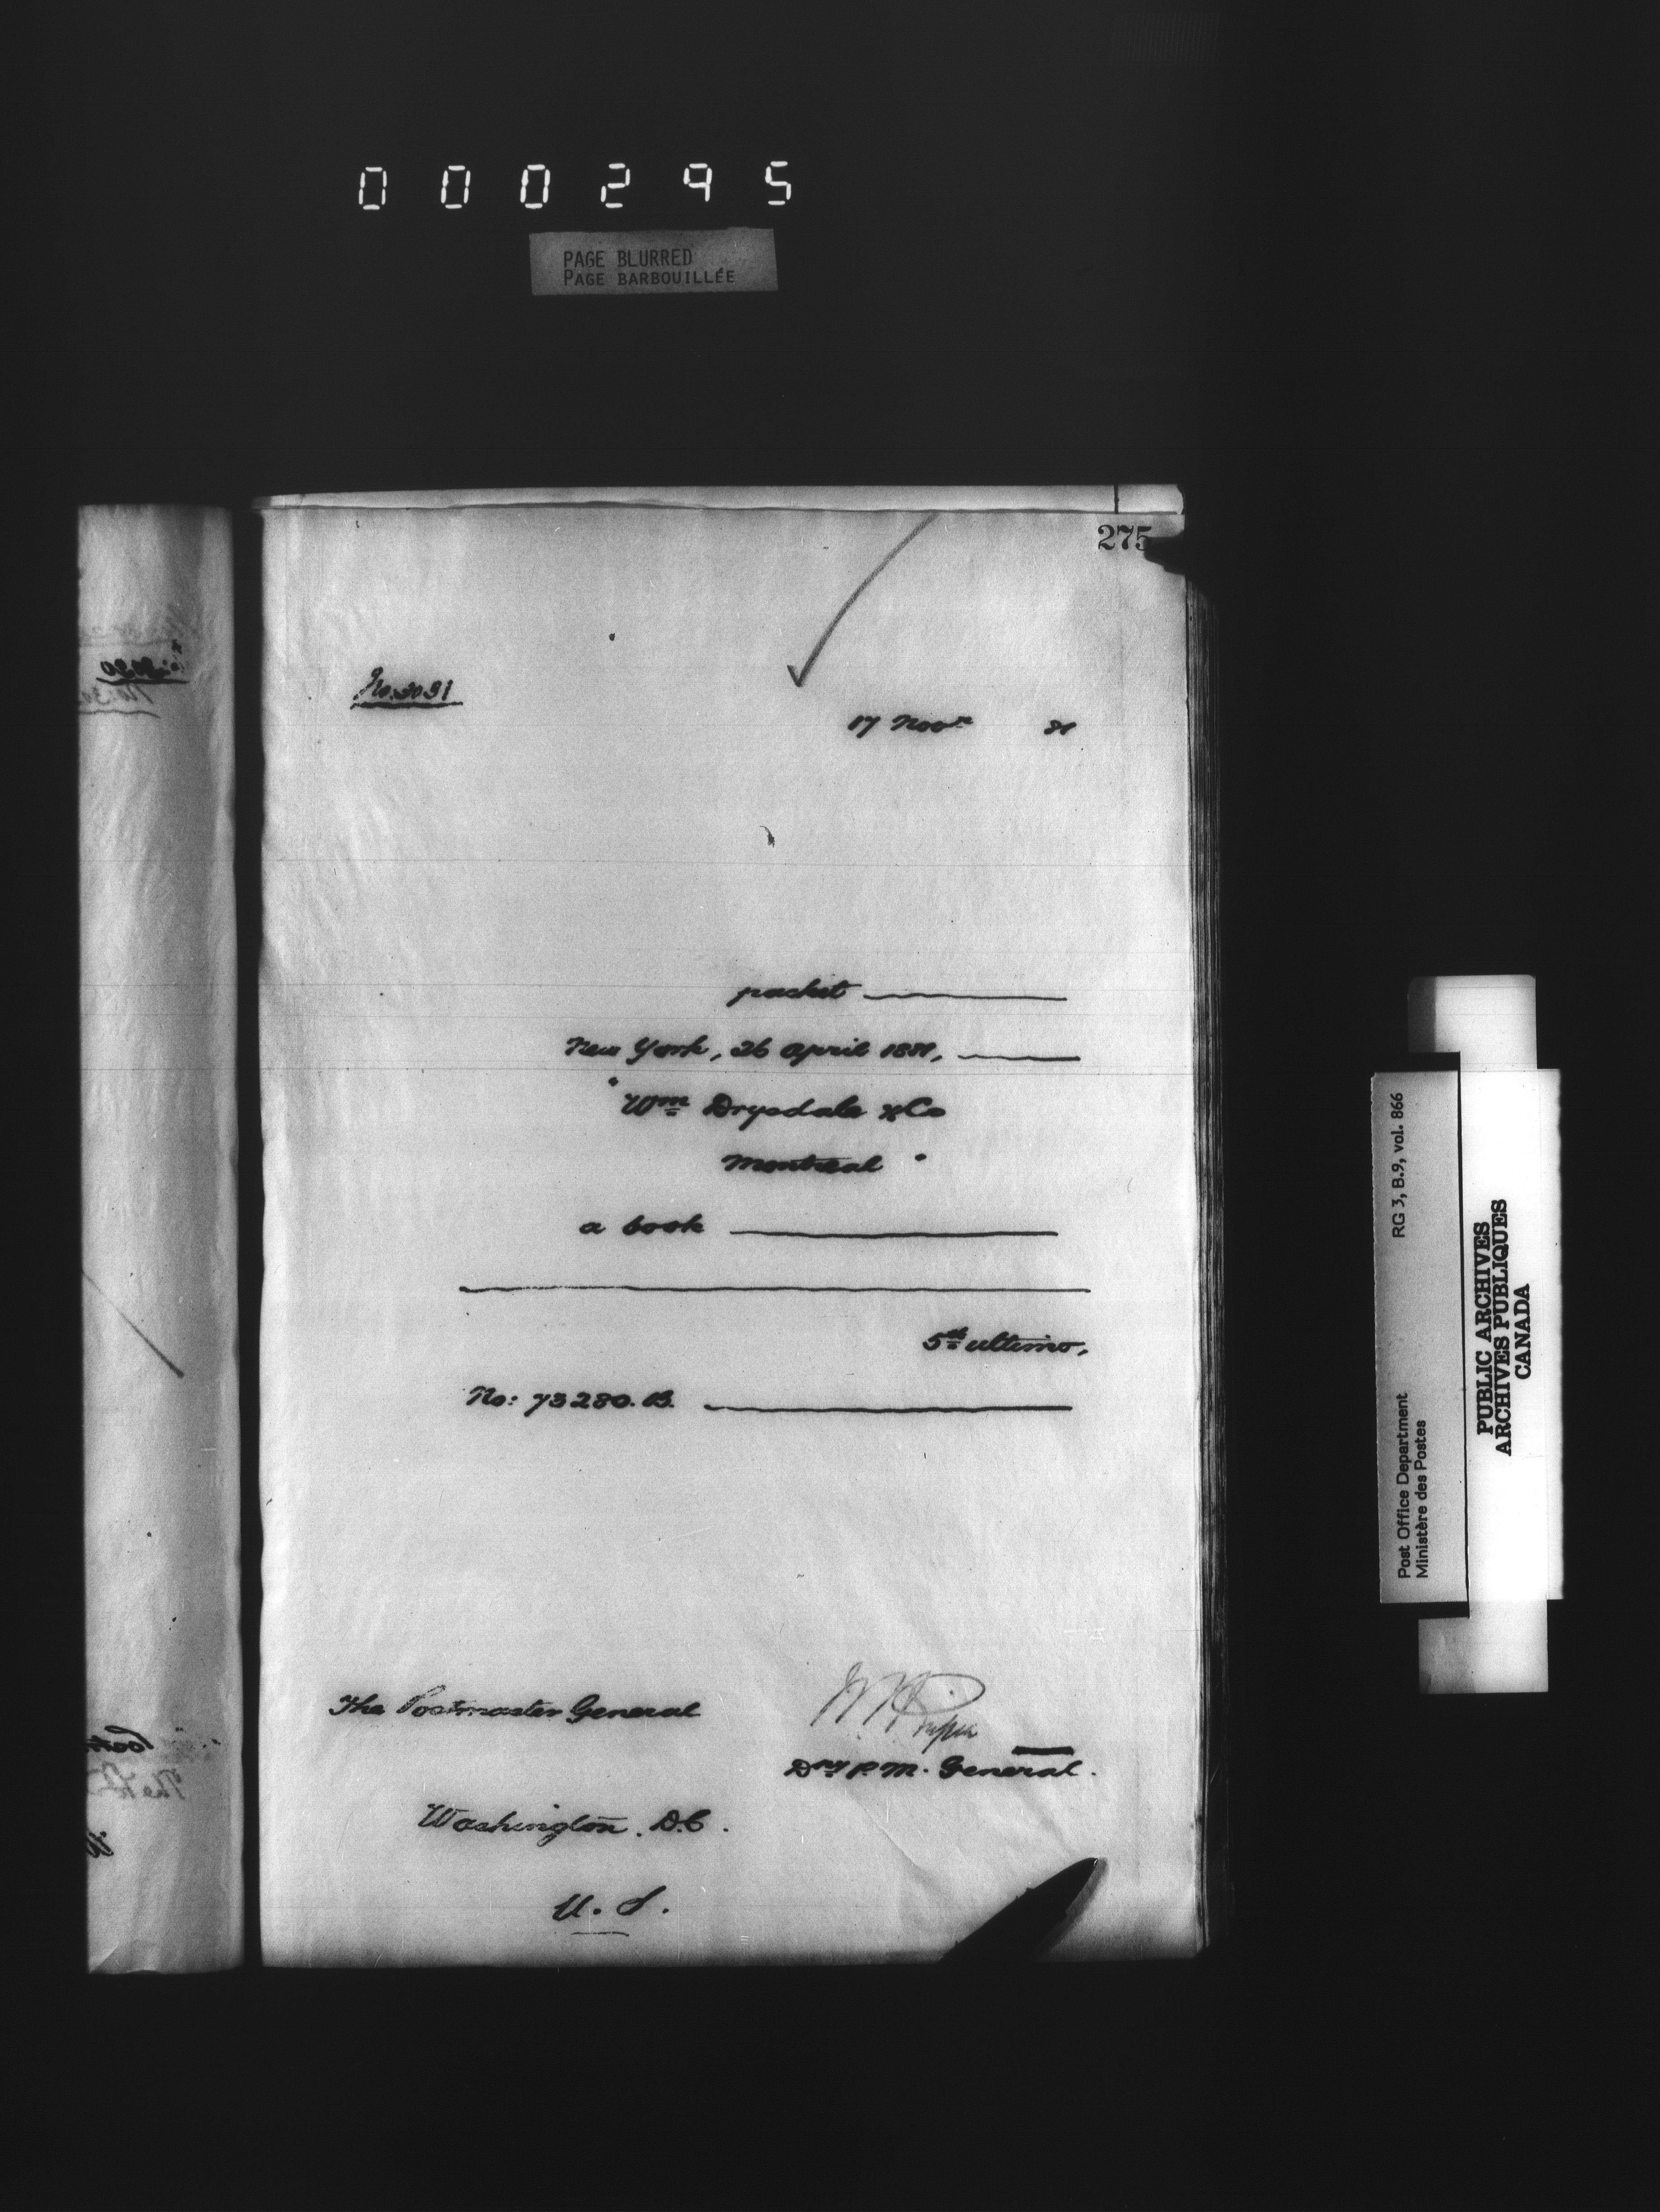 000295
PAGE BLURRED
PAGE BARBOUILLÉE
275
No. 3031
17 Novr 81
packet
New York, 26 April 1881,
"Wm Drysdale & Co
Montreal "
a book
5th ultimo,
No: 73280. B.
The Postmaster General
Dy P. M. General.
Washington. D.C.
U. S.
Post Office Department RG 3, B.9, vol. 866
Ministère des Postes
PUBLIC ARCHIVES
ARCHIVES PUBLIQUES
CANADA